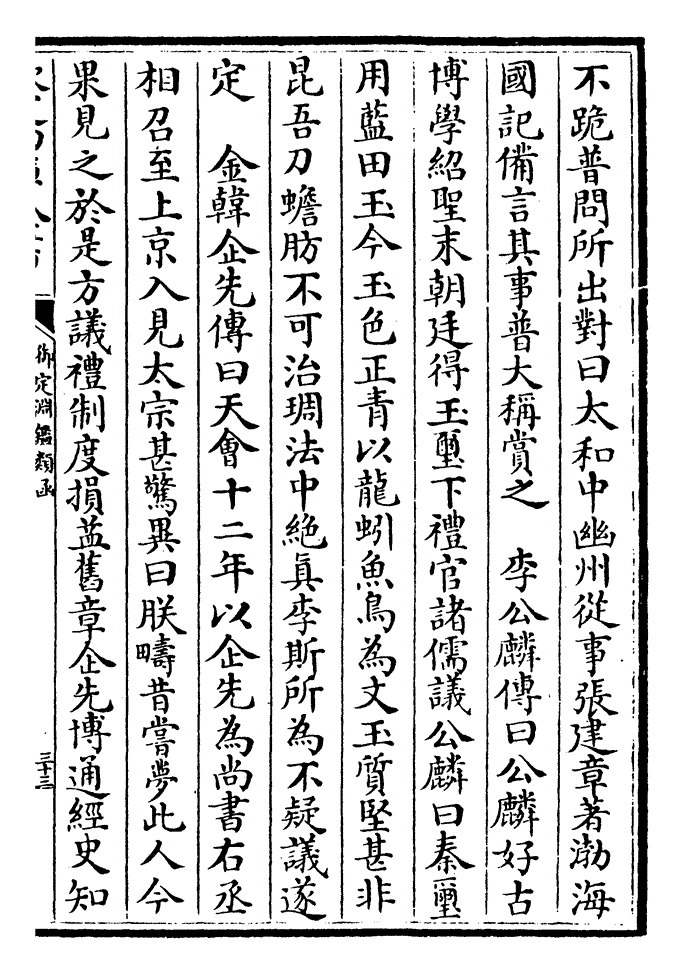 不跪普問所出對曰太和中幽州從事張建章著渤海
國記備言其事普大稱賞之　李公麟傳曰公麟好古
博學紹聖末朝廷得玉璽下禮官諸儒議公麟曰秦璽
用藍田玉今玉色正青以龍蚓魚鳥為文玉質堅甚非
昆吾刀蟾肪不可治琱法中絶真李斯所為不疑議遂
定　金韓企先傳曰天會十二年以企先為尚書右丞
相召至上京入見太宗甚驚異曰朕疇昔嘗夢此人今
果見之於是方議禮制度損益舊章企先博通經史知
御定淵鑑類函
三十三